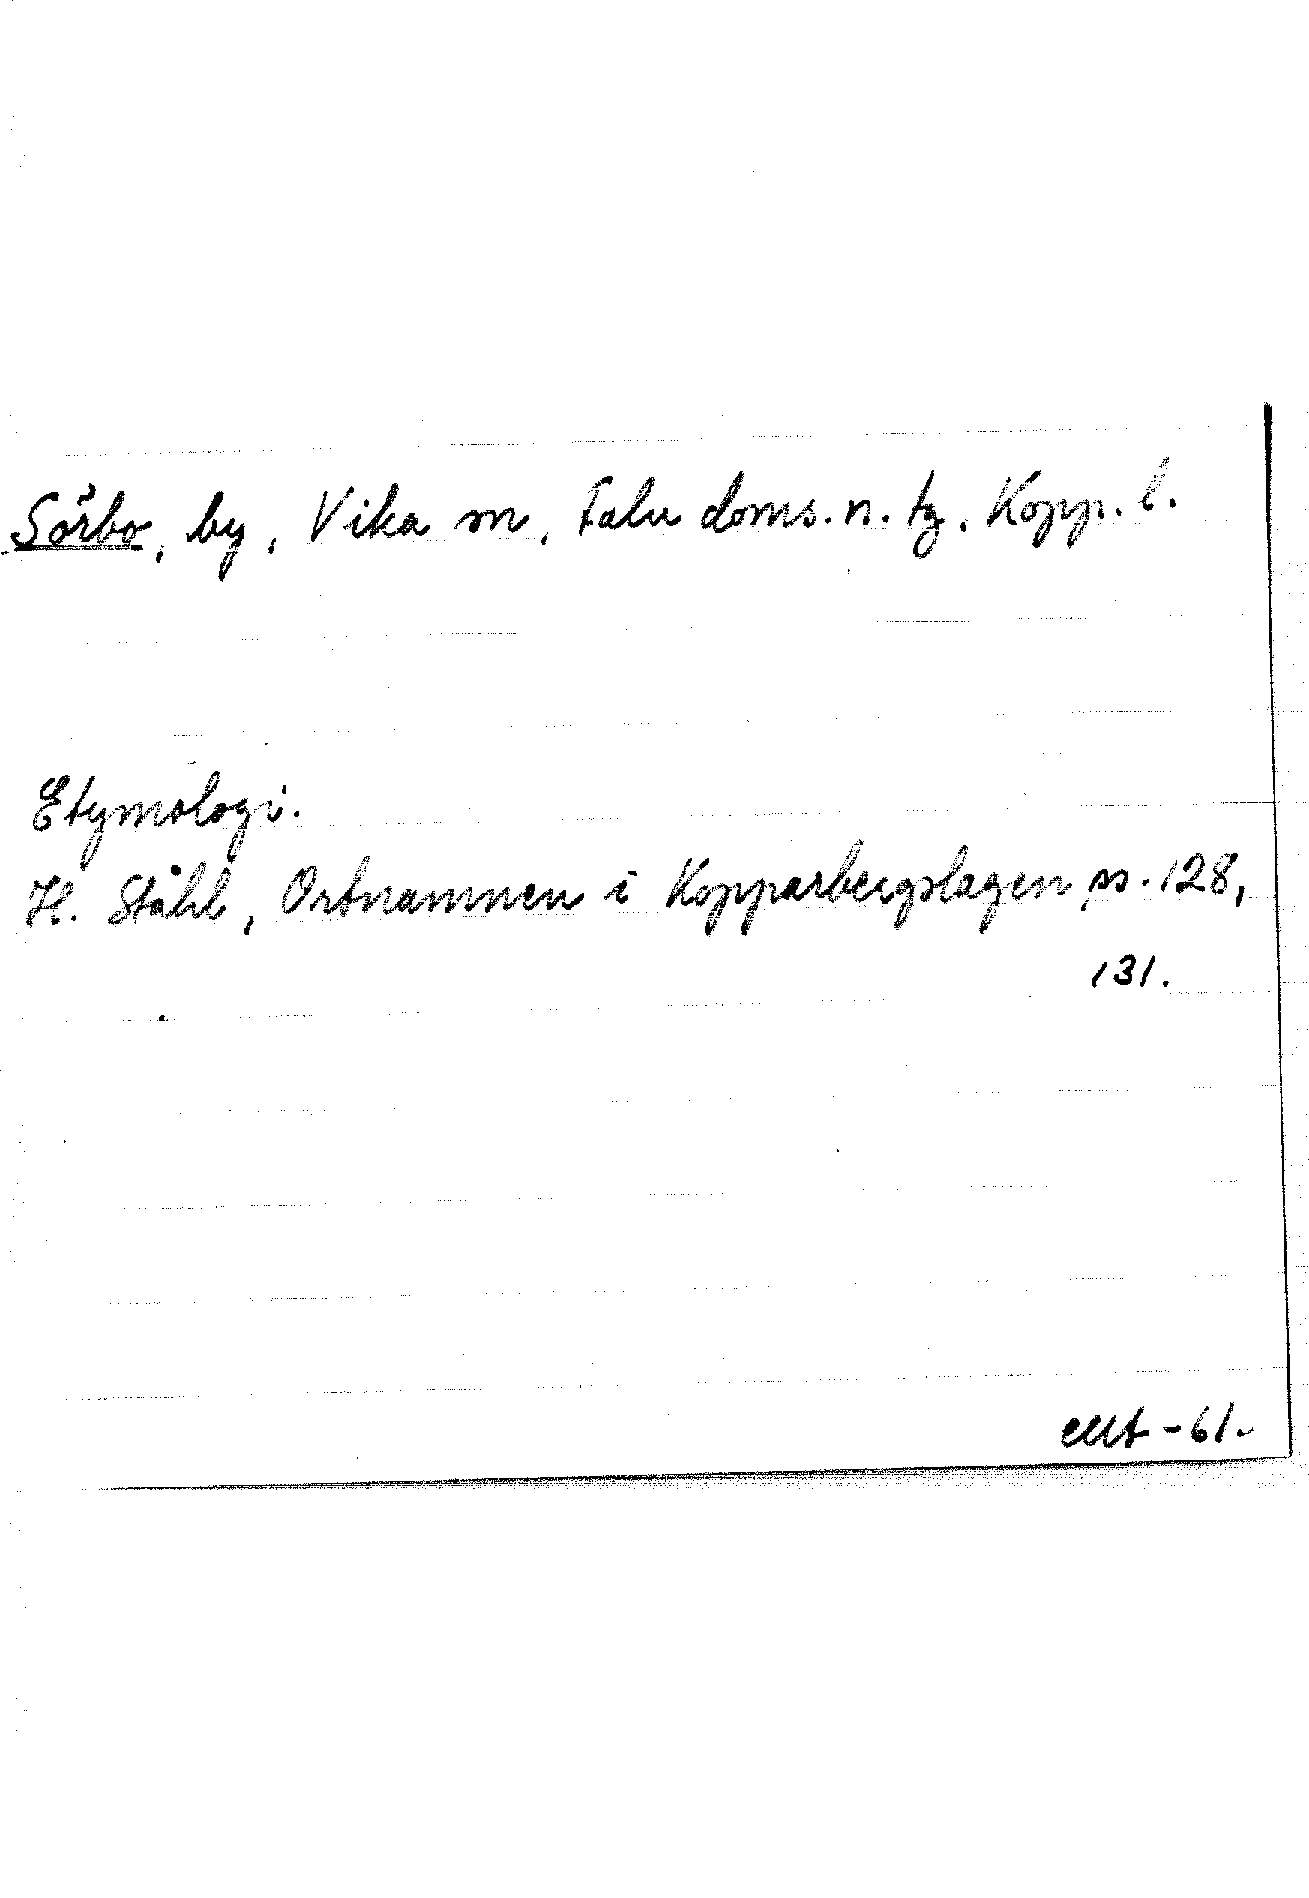 Sörbo, by, Vika sn, Falu doms. n. tg. Kopp. l.
Etymologi.
H. Ståhl, Ortnamnen i Kopparbergslagen, ss. 128,
131.
-61.